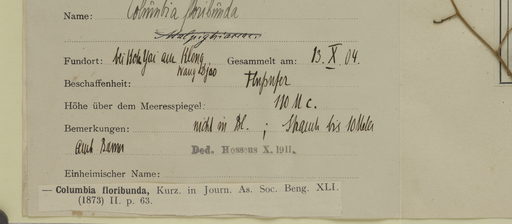 Name: Columbia floribunda
Fundort: bei Hoh Yai am Klong Gesammelt am: 13. X. 04.
Wang Djao
Beschaffenheit: Flußufer
Höhe über dem Meeresspiegel: 110 M c.
Bemerkungen: nicht in Bl. ; Strauch bis 10 Meter
auch Baum Ded. Hosseus X. 1911.
Einheimischer Name:
— Columbia floribunda, Kurz. in Journ. As. Soc. Beng. XLI.
(1873) II. p. 63.